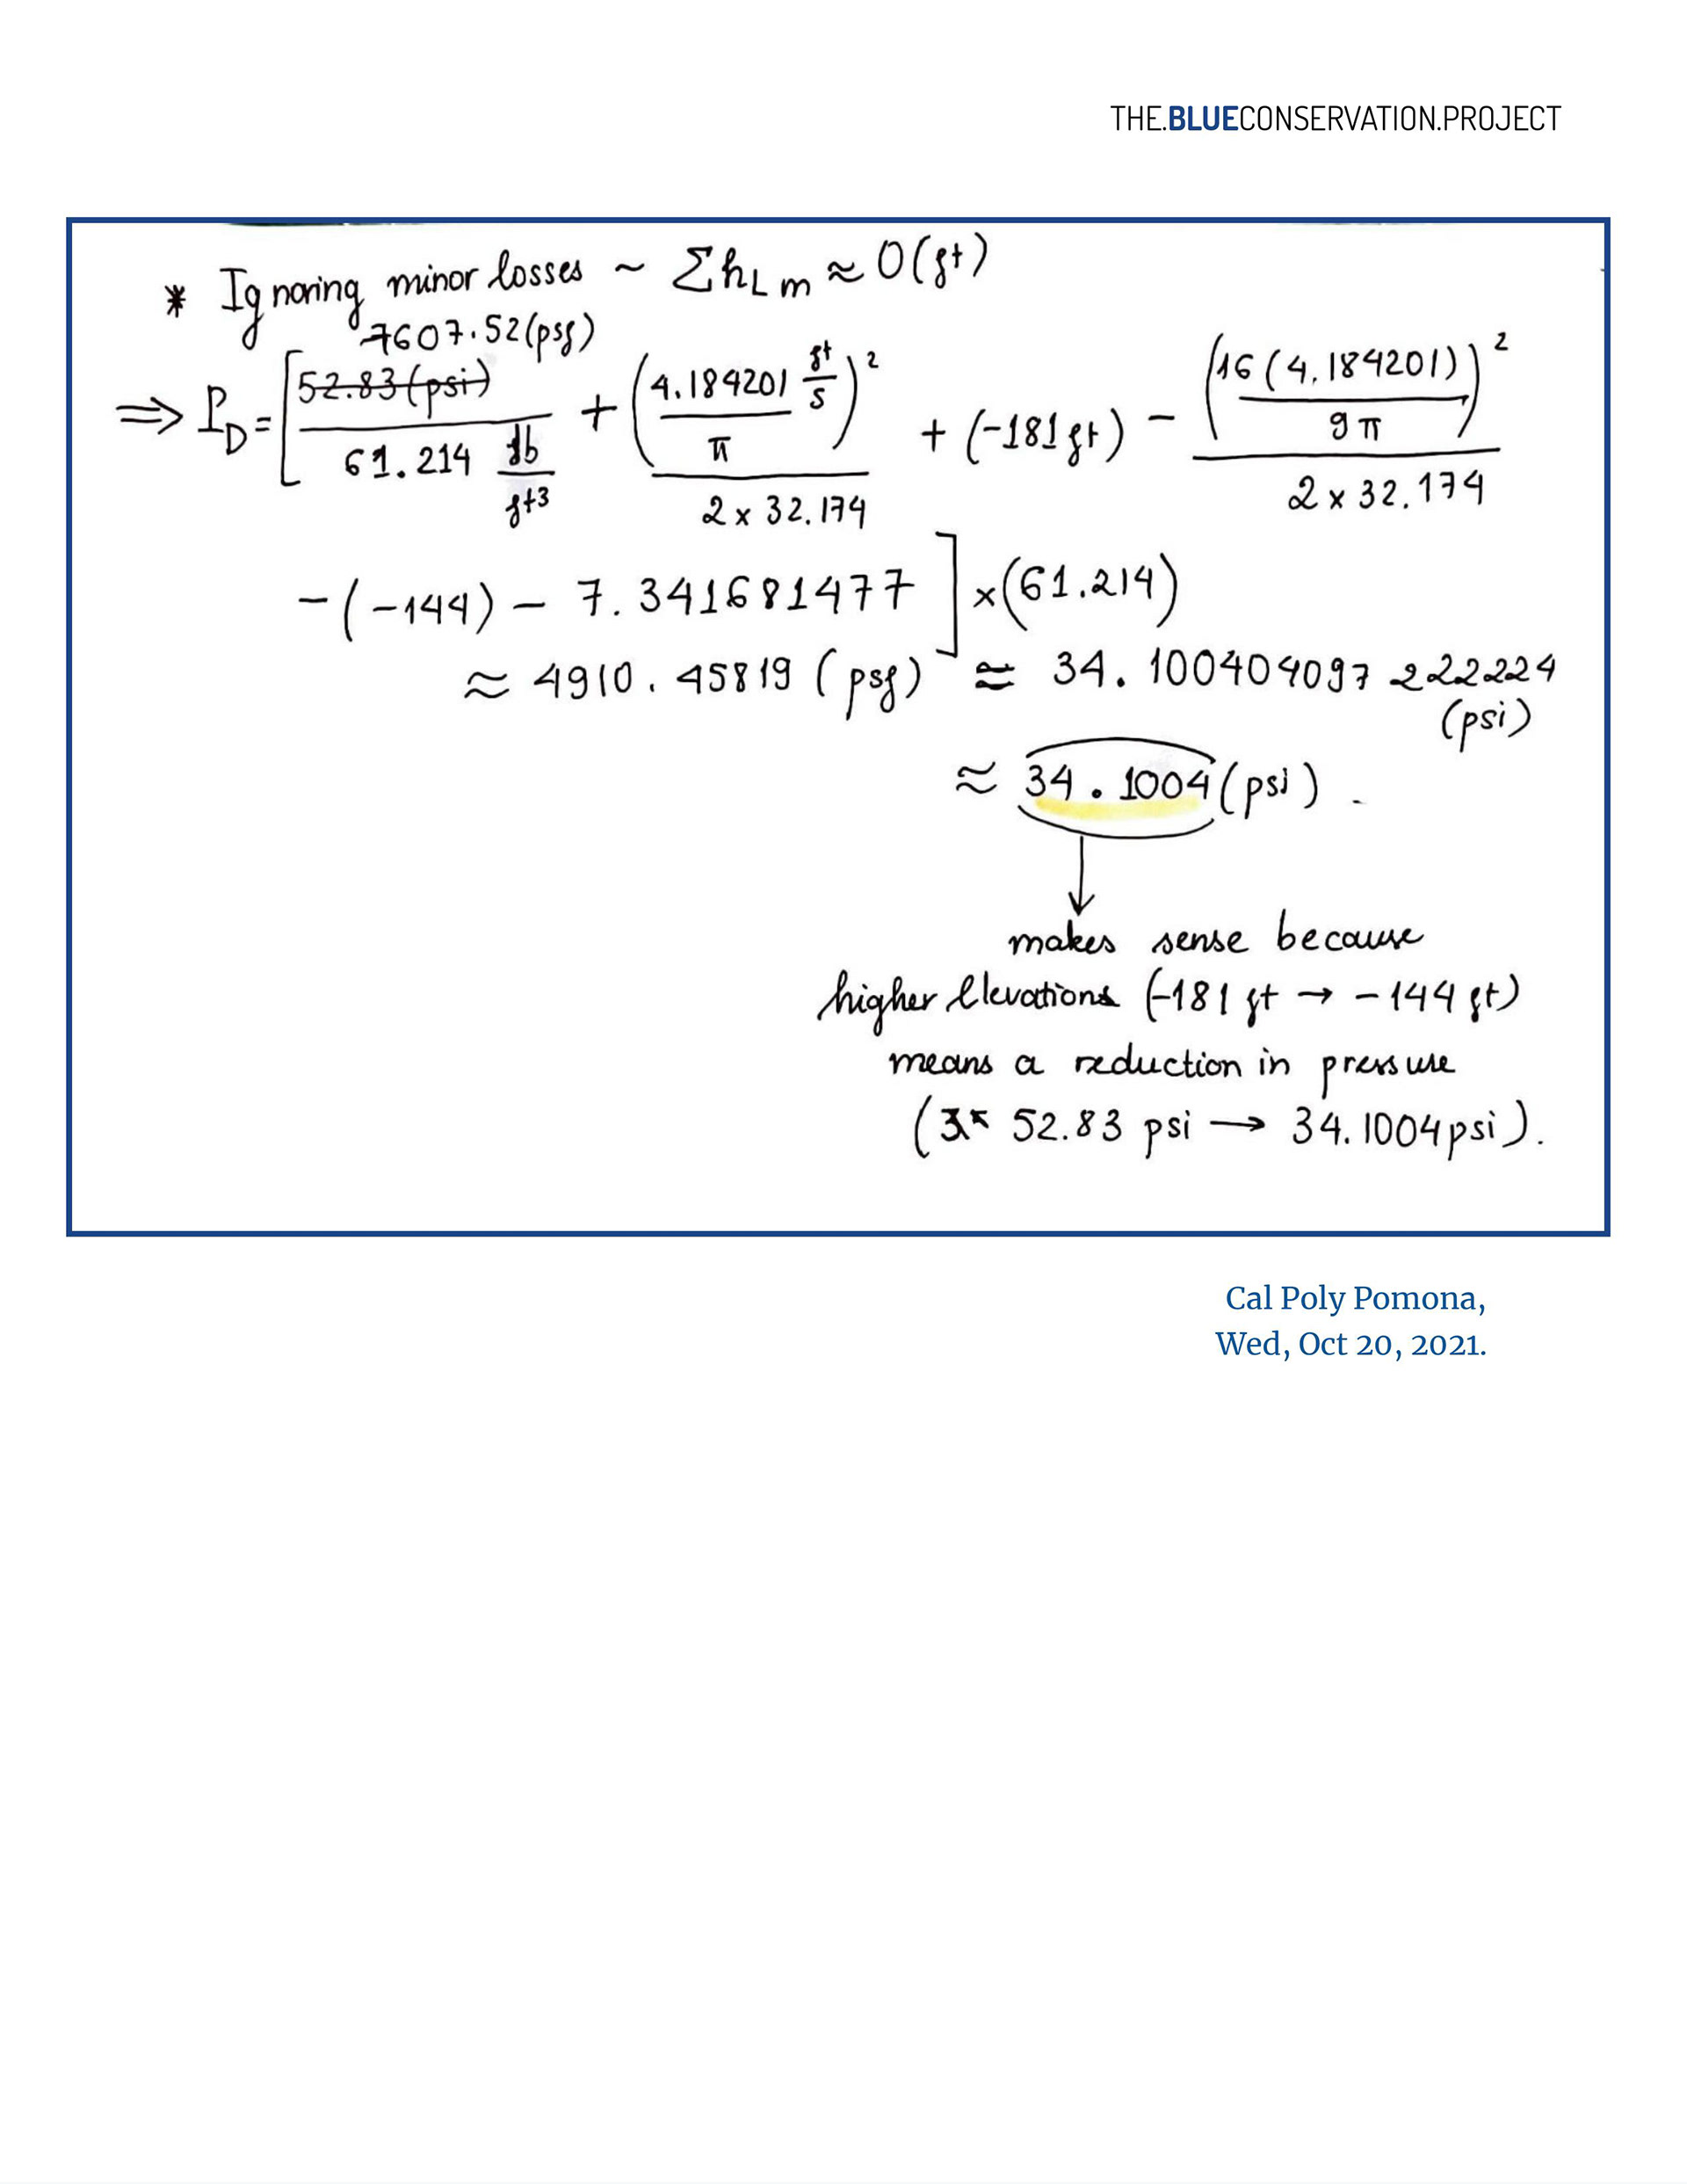 THE.BLUECONSERVATION.PROJECT
* Ignoring minor losses ~ Σh_Lm ≈ 0(ft)
7607.52(psf)
⇒ P_D = [ 52.83(psi) / 61.214 lb/ft3 + (4.184201 ft/s / π)² / 2 x 32.174 + (-181ft) − (16(4.184201) / 9π)² / 2 x 32.174
− (−144) − 7.341681477 ] x (61.214)
≈ 4910.45819 (psf) ≈ 34.100404097222224
(psi)
≈ 34.1004 (psi).
makes sense because
higher elevations (-181 ft → -144 ft)
means a reduction in pressure
(52.83 psi → 34.1004psi).
Cal Poly Pomona,
Wed, Oct 20, 2021.